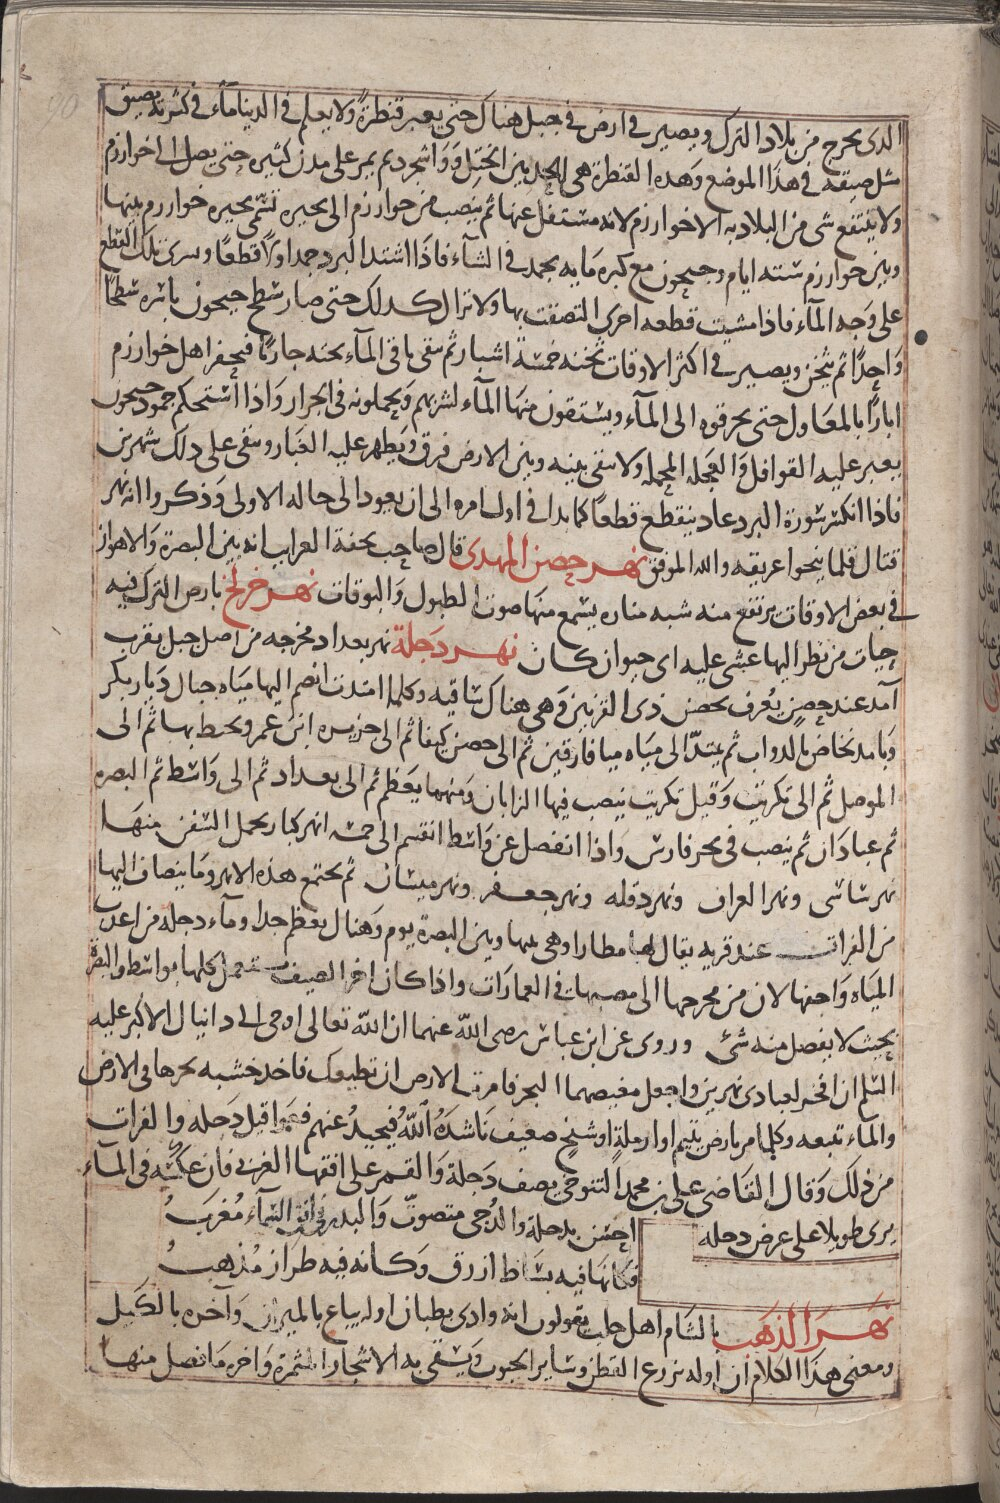 الدى يخرج من بلاد الترك ويصير فى ارض فى جبل هناك حتى يعبر قنطرة ولا يعلم فى الدنيا ماء فى كثرته يضيق
مثل ضيقه فى هذا الموضع وهده القنطرة هى الحد بين الختل وواشجرد ثم يمر على مدن كثيره حتى يصل الى خوارزم
ولا ينتفع شى من البلاد به الا خوارزم لانه مستفل عنها ثم ينصب من خوارزم الى بحيره تسمى بحيره خوارزم بينها
وبين خوارزم سته ايام وجيحون مع كبره مايه يجمد فى الشتاء فاذا اشتد البرد جمد اولا قطعا وسرى تلك القطع
على وجه الماء فاذا مشيت قطعه اخرى التصقت بها ولا تزال كدلك حتى صار سطح جيحون باسره سطحا
واحدا ثم يثخن ويصير فى اكثر الاوقات ثخنه خمسة اشبار ثم يبقى باقى الماء تحته جاريا فيحفر اهل خوارزم
ابارا بالمعاول حتى يخرقوه الى الماء ويستقون منها الماء لشربهم ويحملونه فى الجرار واذا استحكم جمود جيحون
يعبر عليه القوافل والعجله المحمله ولا يبقى بينه وبين الارض فرق ويظهر عليه الغبار ويبقى على دلك شهرين
فاذا انكسر سورة البرد عاد ينقطع قطعا كما بدا فى اول امره الى ان يعود الى حاله الاولى وذكروا انه نهر
قتال قلما ينجوا غريقه والله الموفق نهر حصن المهدى قال صاحب تحفة الغرايب انه بين البصرة والاهواز
فى بعض الاوقات يرتفع منه شبه مناره يسمع منها صوت الطبول والبوقات نهر خرلخ بارض الترك فيه
حيات من نظر اليها غشى عليه اى حيوان كان نهر دجلة نهر بغداد مخرجه من اصل جبل بقرب
آمد عند حصن يعرف بحصن ذى القرنين وهى هناك ساقيه وكلما امتدت انضم اليها مياه جبال ديار بكر
وبامد تخاض بالدواب ثم يمتد الى مياه ميافارقين ثم الى حصن كيفا ثم الى جزيره ابن عمر ويحيط بها ثم الى
الموصل ثم الى تكريت وقيل تكريت ينصب فيها الزابان ومنهما يعظم ثم الى بغداد ثم الى واسط ثم البصره
ثم عبادان ثم ينصب فى بحر فارس واذا انفصل عن واسط انقسم الى خمسه انهر كبار يحمل السفن منها
نهر ساسى ونهر الغراف ونهر دقله ونهر جعفر ونهر ميسان ثم يجتمع هذه الانهر وما ينضاف اليها
من الفرات عند قريه يقال لها مطارا وهى بينها وبين البصرة يوم وهناك يعظم جدا وماء دجله من اعدب
المياه واخفها لان من مخرجها الى مصبها فى العمارات واذا كان اخر الصيف يستعمل كلها بواسط والبصرة
بحيث لا يفصل منه شئ وروى عن ابن عباس رضى الله عنهما ان الله تعالى اوحى الى دانيال الاكبر عليه
السلم ان افجر لعبادى نهرين واجعل مغيضهما البحر فامرت الارض ان تطيعك فاخد خشبه يجرها فى الارض
والماء تبعه وكلما مر بارض يتيم او ارملة او شيخ ضعيف ناشده الله فيحيد عنهم فعواقيل دجله والفرات
من ذلك وقال القاضى على بن محمد التنوخى يصف دجلة والقمر على افقها الغربى فان عكسه فى الماء
يرى طويلا على عرض دجله
احسن بدجلة والدجى متصوب والبدر فى افق السماء مغرب
فكانها فيه بساط ازرق وكانه فيه طراز مذهب
نهر الذهب بالشام اهل حلب يقولون انه وادى بطنان اوله يباع بالميزان وآخره بالكيل
ومعنى هذا الكلام ان اوله يزرع القطن وساير الحبوب ويسقى به الاشجار المثمرة واخره ما فضل منها